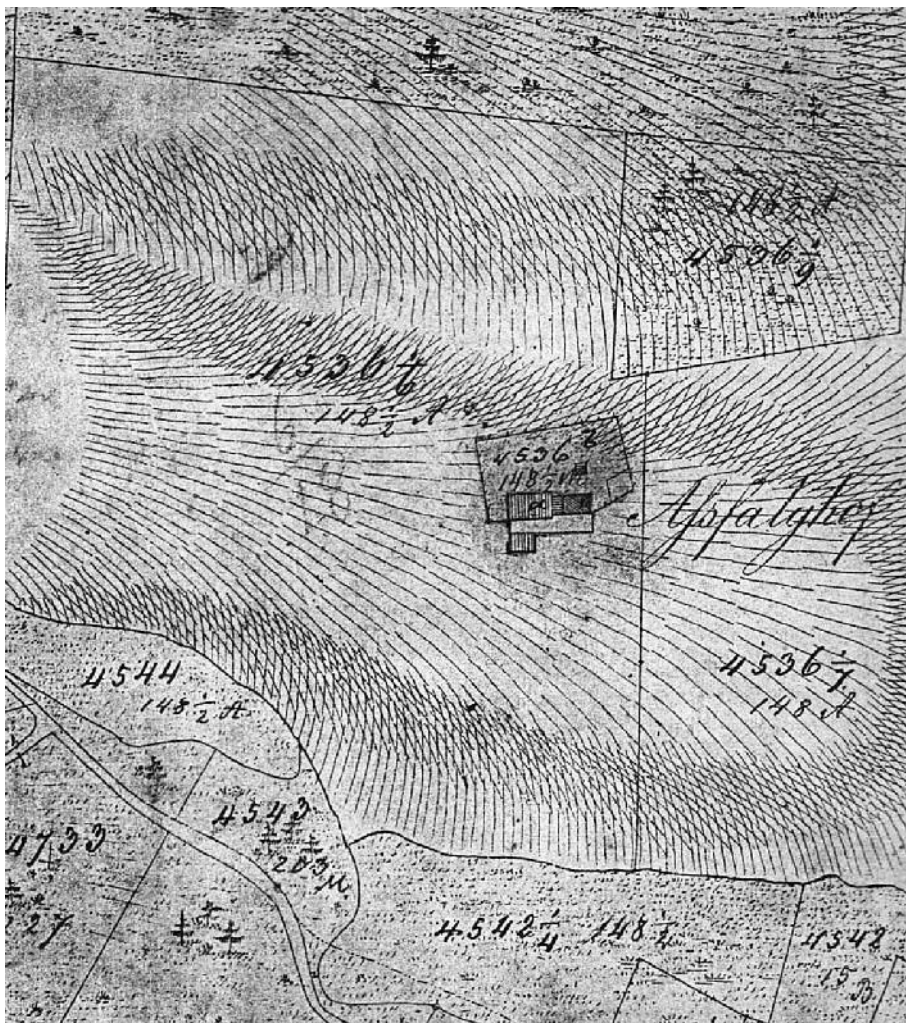 148 1/2 A
4536 1/9
4536 1/6
148 1/2 A
4536
148 1/2
4536 1/7
148 A
4544
148 1/2 A
4543
203
4733
27
4542 1/4 148 1/2
4542
15
B